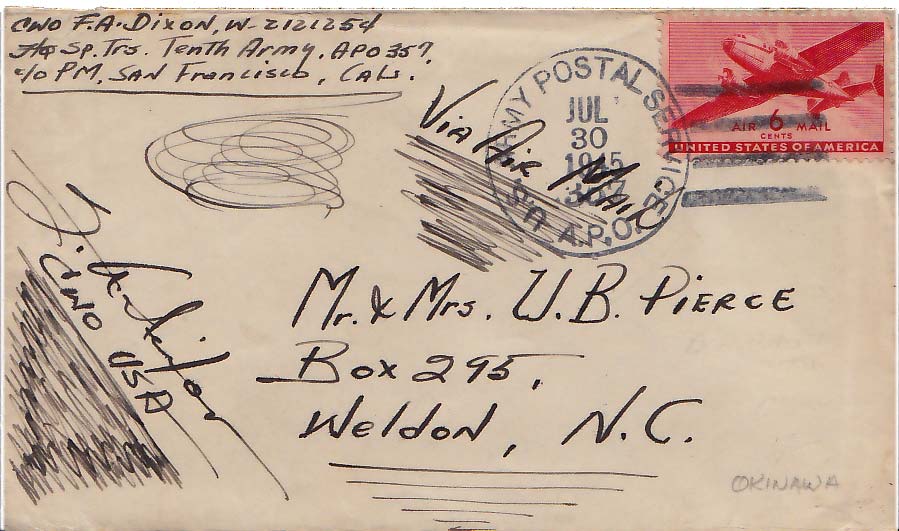 CWO F.A. Dixon, W-2121254
Hq Sp. Trs. Tenth Army, APO 357,
c/o PM, San Francisco, Cals.
Via Air Mail
ARMY POSTAL SERVICE
JUL
30
1945
357
A.P.O.
AIR 6 MAIL
CENTS
UNITED STATES OF AMERICA
Mr. & Mrs. W. B. Pierce
Box 295,
Weldon, N.C.
CWO USA
OKINAWA